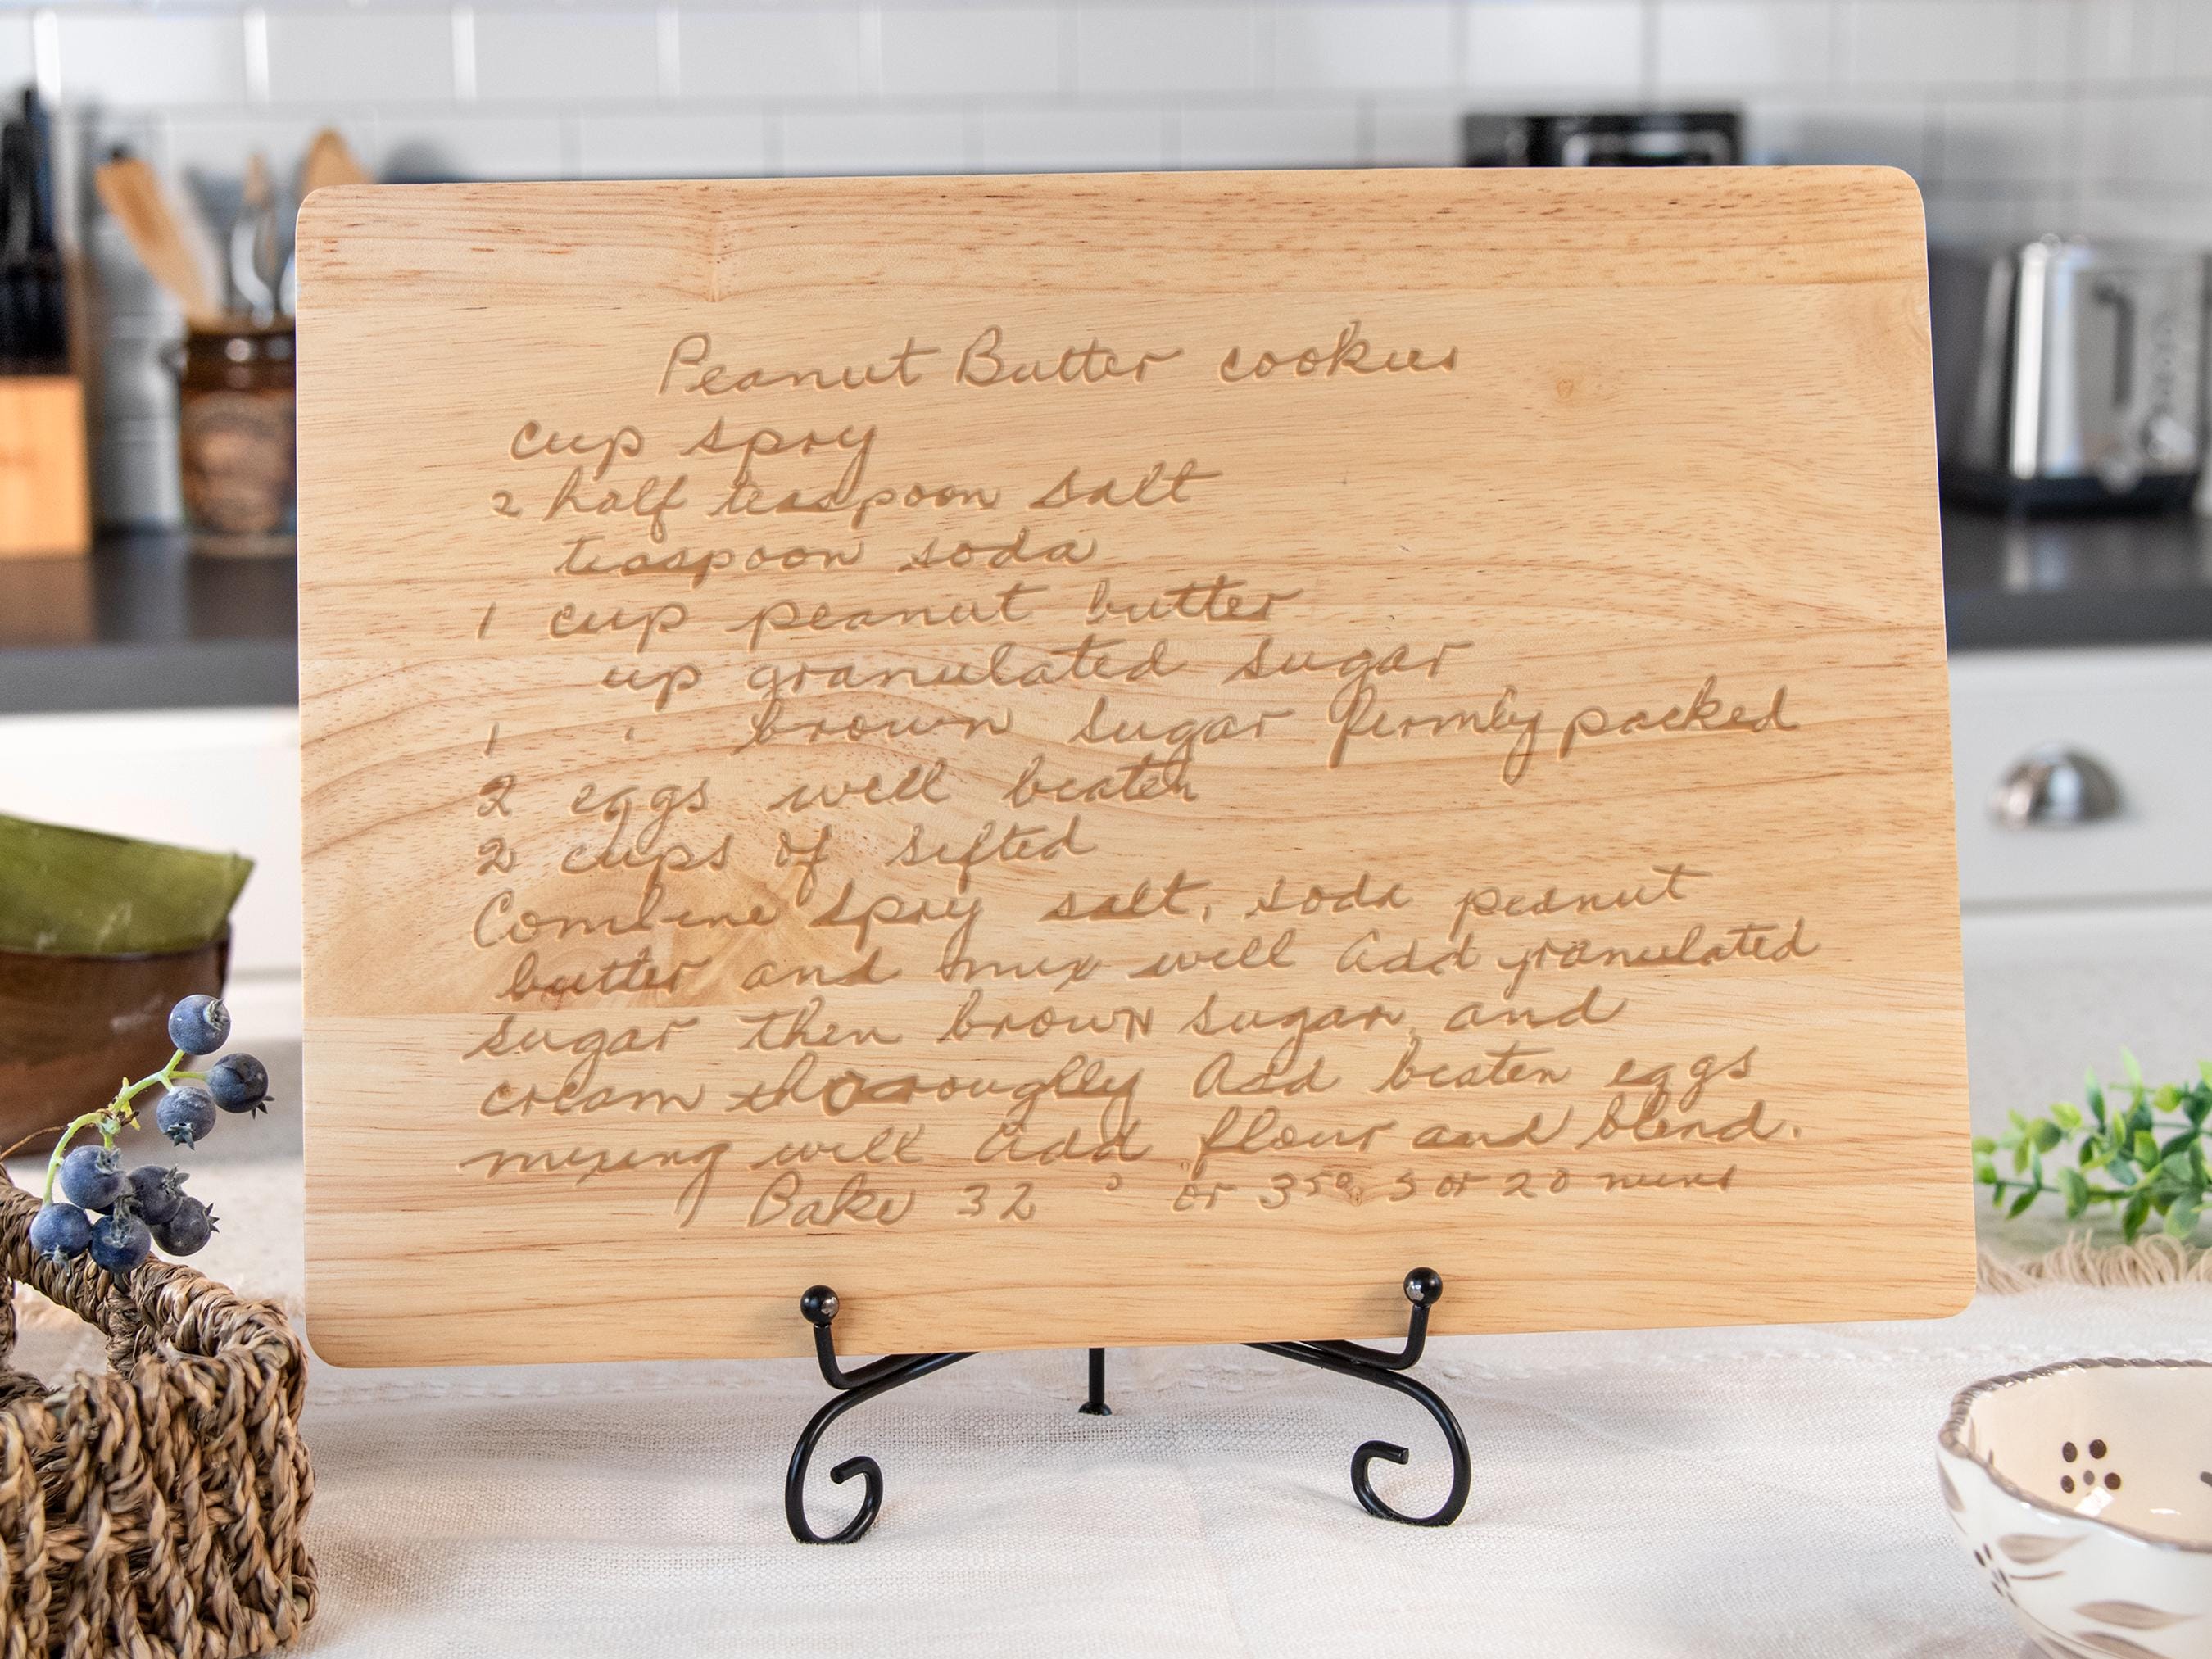 Peanut Butter cookies
cup spry
2 half teaspoon salt
teaspoon soda
1 cup peanut butter
up granulated sugar
1 brown sugar firmly packed
2 eggs well beaten
2 cups of sifted
Combine spry salt, soda peanut
butter and mix well Add granulated
sugar then brown sugar, and
cream thoroughly Add beaten eggs
mixing well Add flour and blend.
Bake 32 ° or 350, 5 or 20 mins